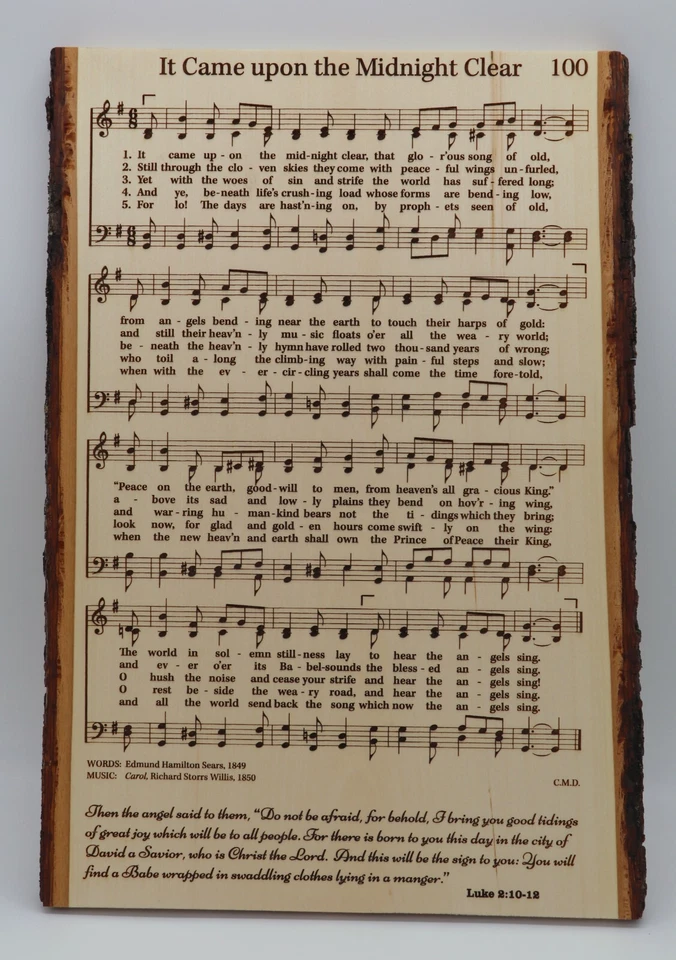 It Came upon the Midnight Clear 100
1. It came up - on the mid - night clear, that glo - r'ous song of old,
2. Still through the clo - ven skies they come with peace - ful wings un - furled,
3. Yet with the woes of sin and strife the world has suf - fered long;
4. And ye, be - neath life's crush - ing load whose forms are bend - ing low,
5. For lo! The days are hast'n - ing on, by proph - ets seen of old,
from an - gels bend - ing near the earth to touch their harps of gold:
and still their heav'n - ly mu - sic floats o'er all the wea - ry world;
be - neath the heav'n - ly hymn have rolled two thou - sand years of wrong;
who toil a - long the climb - ing way with pain - ful steps and slow;
when with the ev - er - cir - cling years shall come the time fore - told,
"Peace on the earth, good - will to men, from heaven's all gra - cious King."
a - bove its sad and low - ly plains they bend on hov'r - ing wing,
and war - ring hu - man - kind bears not the ti - dings which they bring;
look now, for glad and gold - en hours come swift - ly on the wing:
when the new heav'n and earth shall own the Prince of Peace their King,
The world in sol - emn still - ness lay to hear the an - gels sing.
and ev - er o'er its Ba - bel - sounds the bless - ed an - gels sing.
O hush the noise and cease your strife and hear the an - gels sing!
O rest be - side the wea - ry road, and hear the an - gels sing.
and all the world send back the song which now the an - gels sing.
WORDS: Edmund Hamilton Sears, 1849
MUSIC: Carol, Richard Storrs Willis, 1850 C.M.D.
Then the angel said to them, "Do not be afraid, for behold, I bring you good tidings
of great joy which will be to all people. For there is born to you this day in the city of
David a Savior, who is Christ the Lord. And this will be the sign to you: You will
find a Babe wrapped in swaddling clothes lying in a manger."
Luke 2:10-12